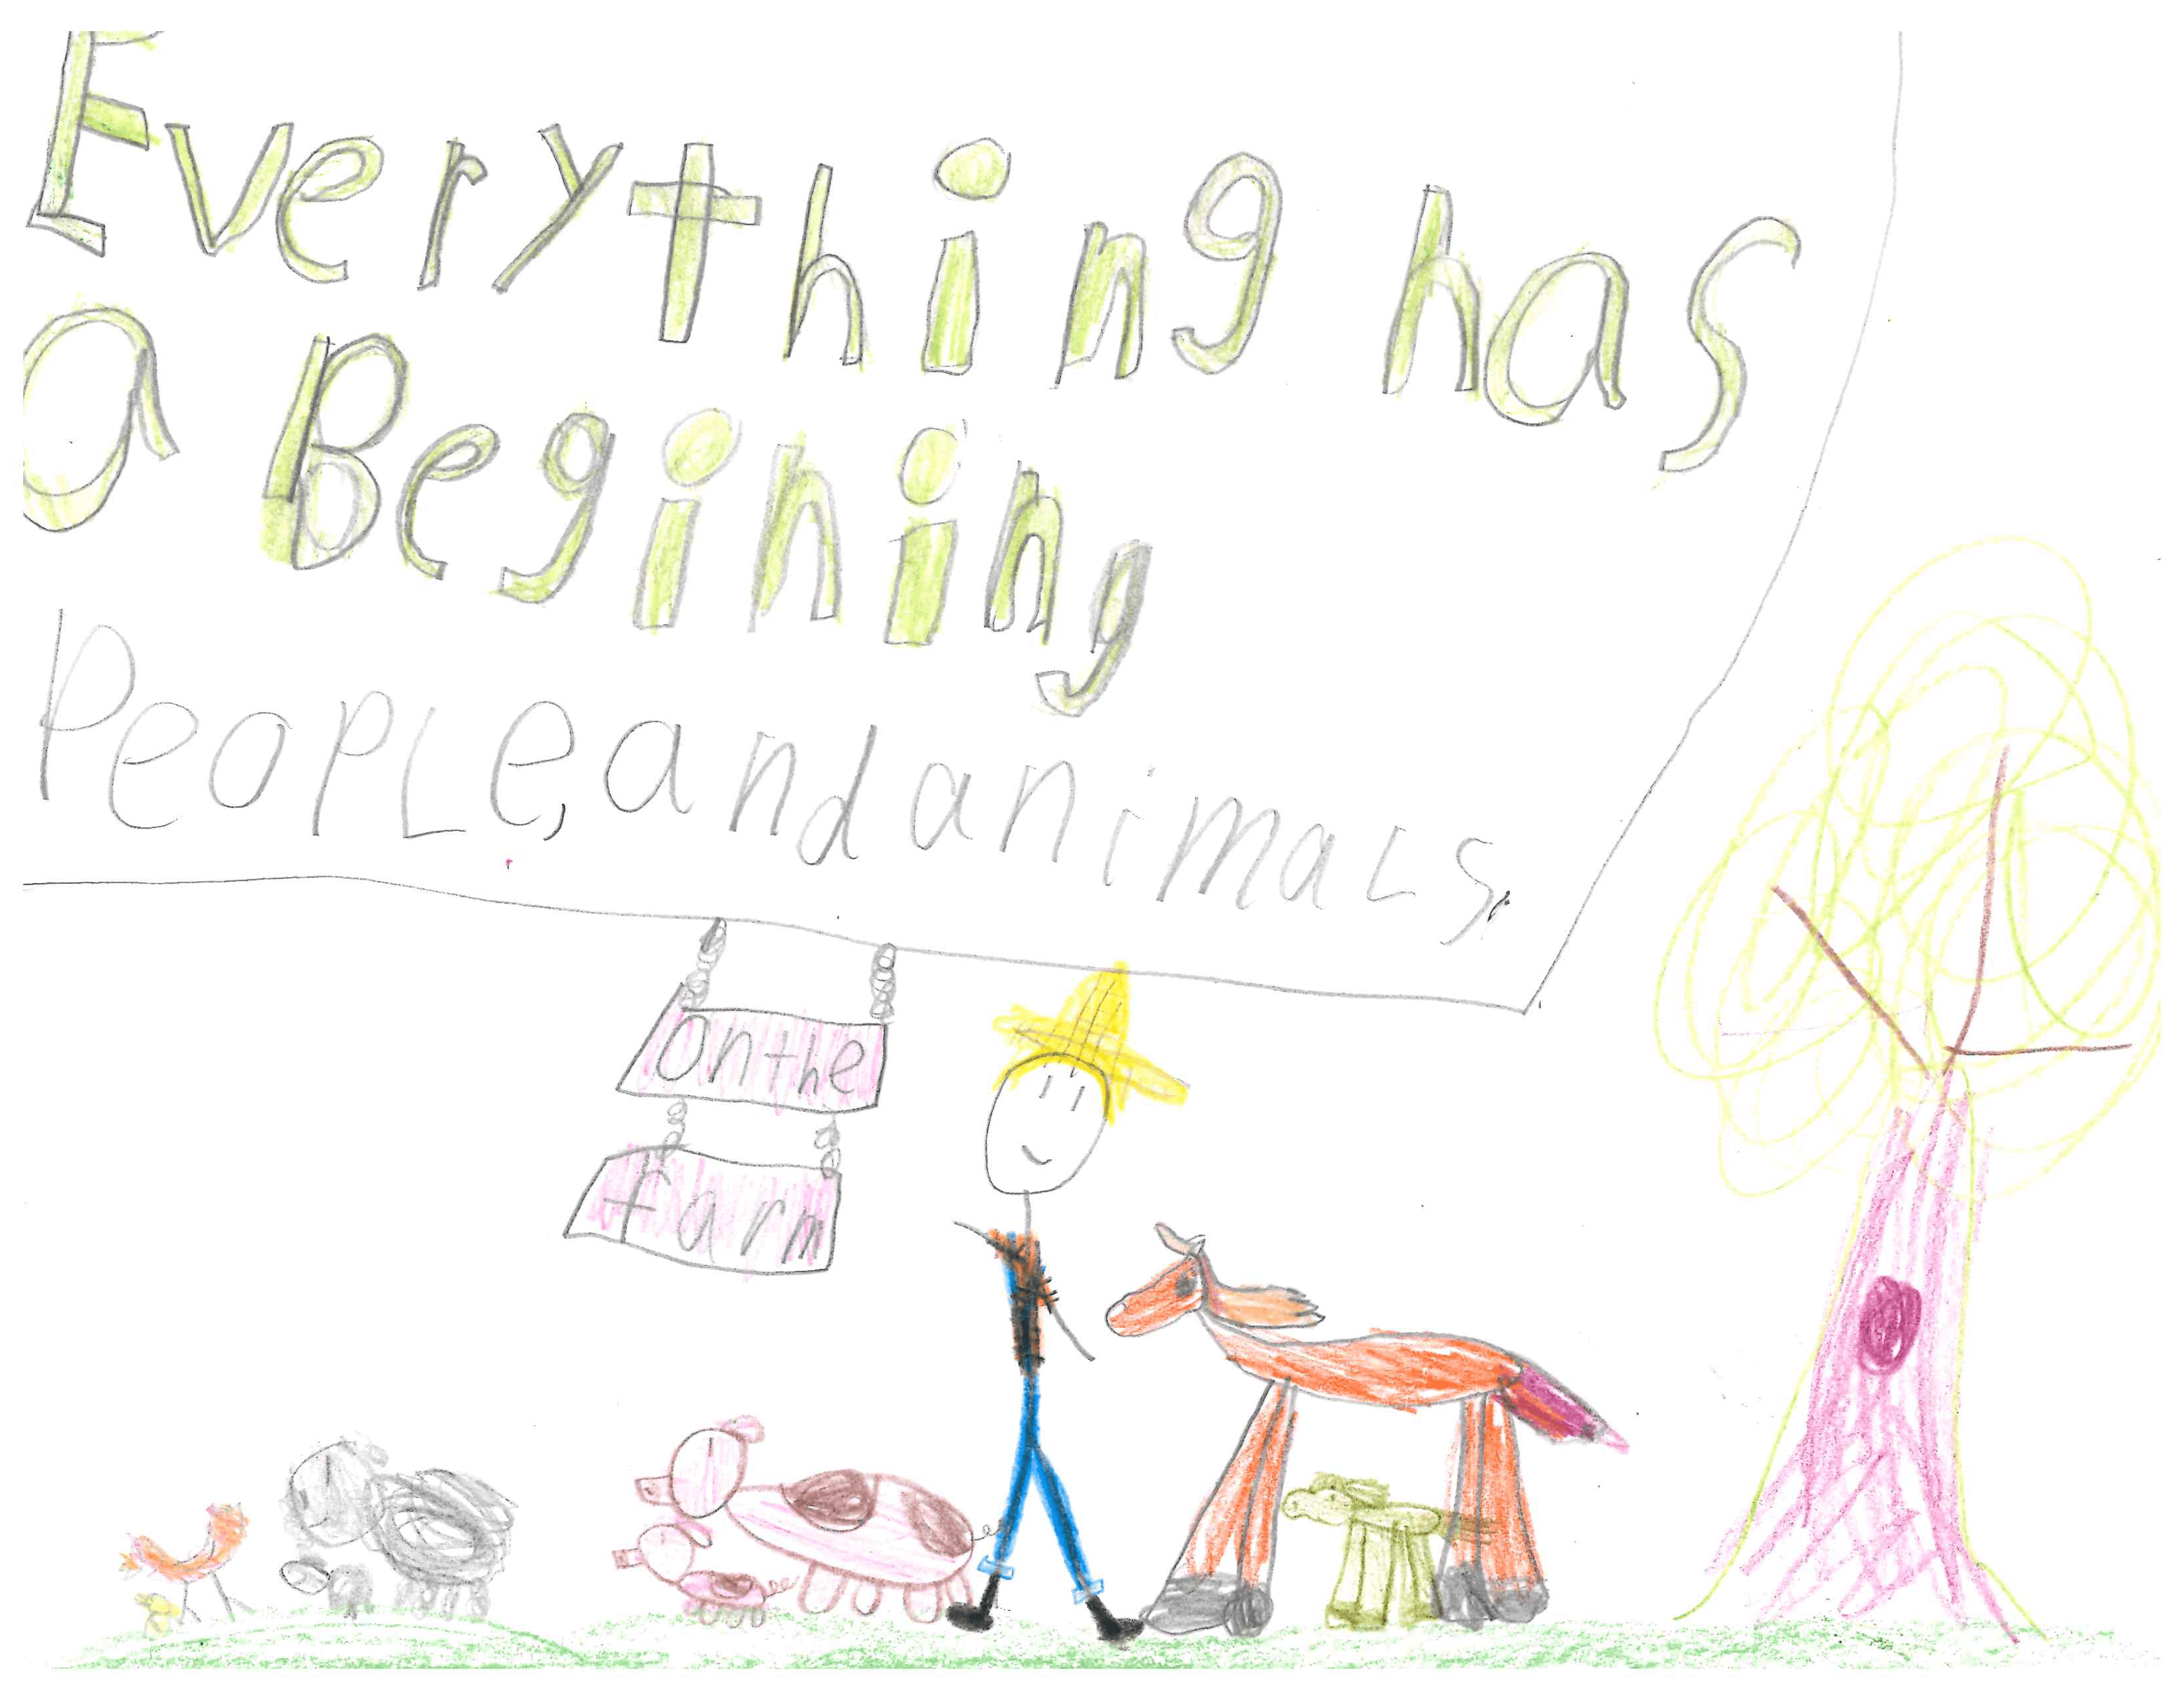 Everything has
a Begining
PeopLe, and animaLs.
on the
farm